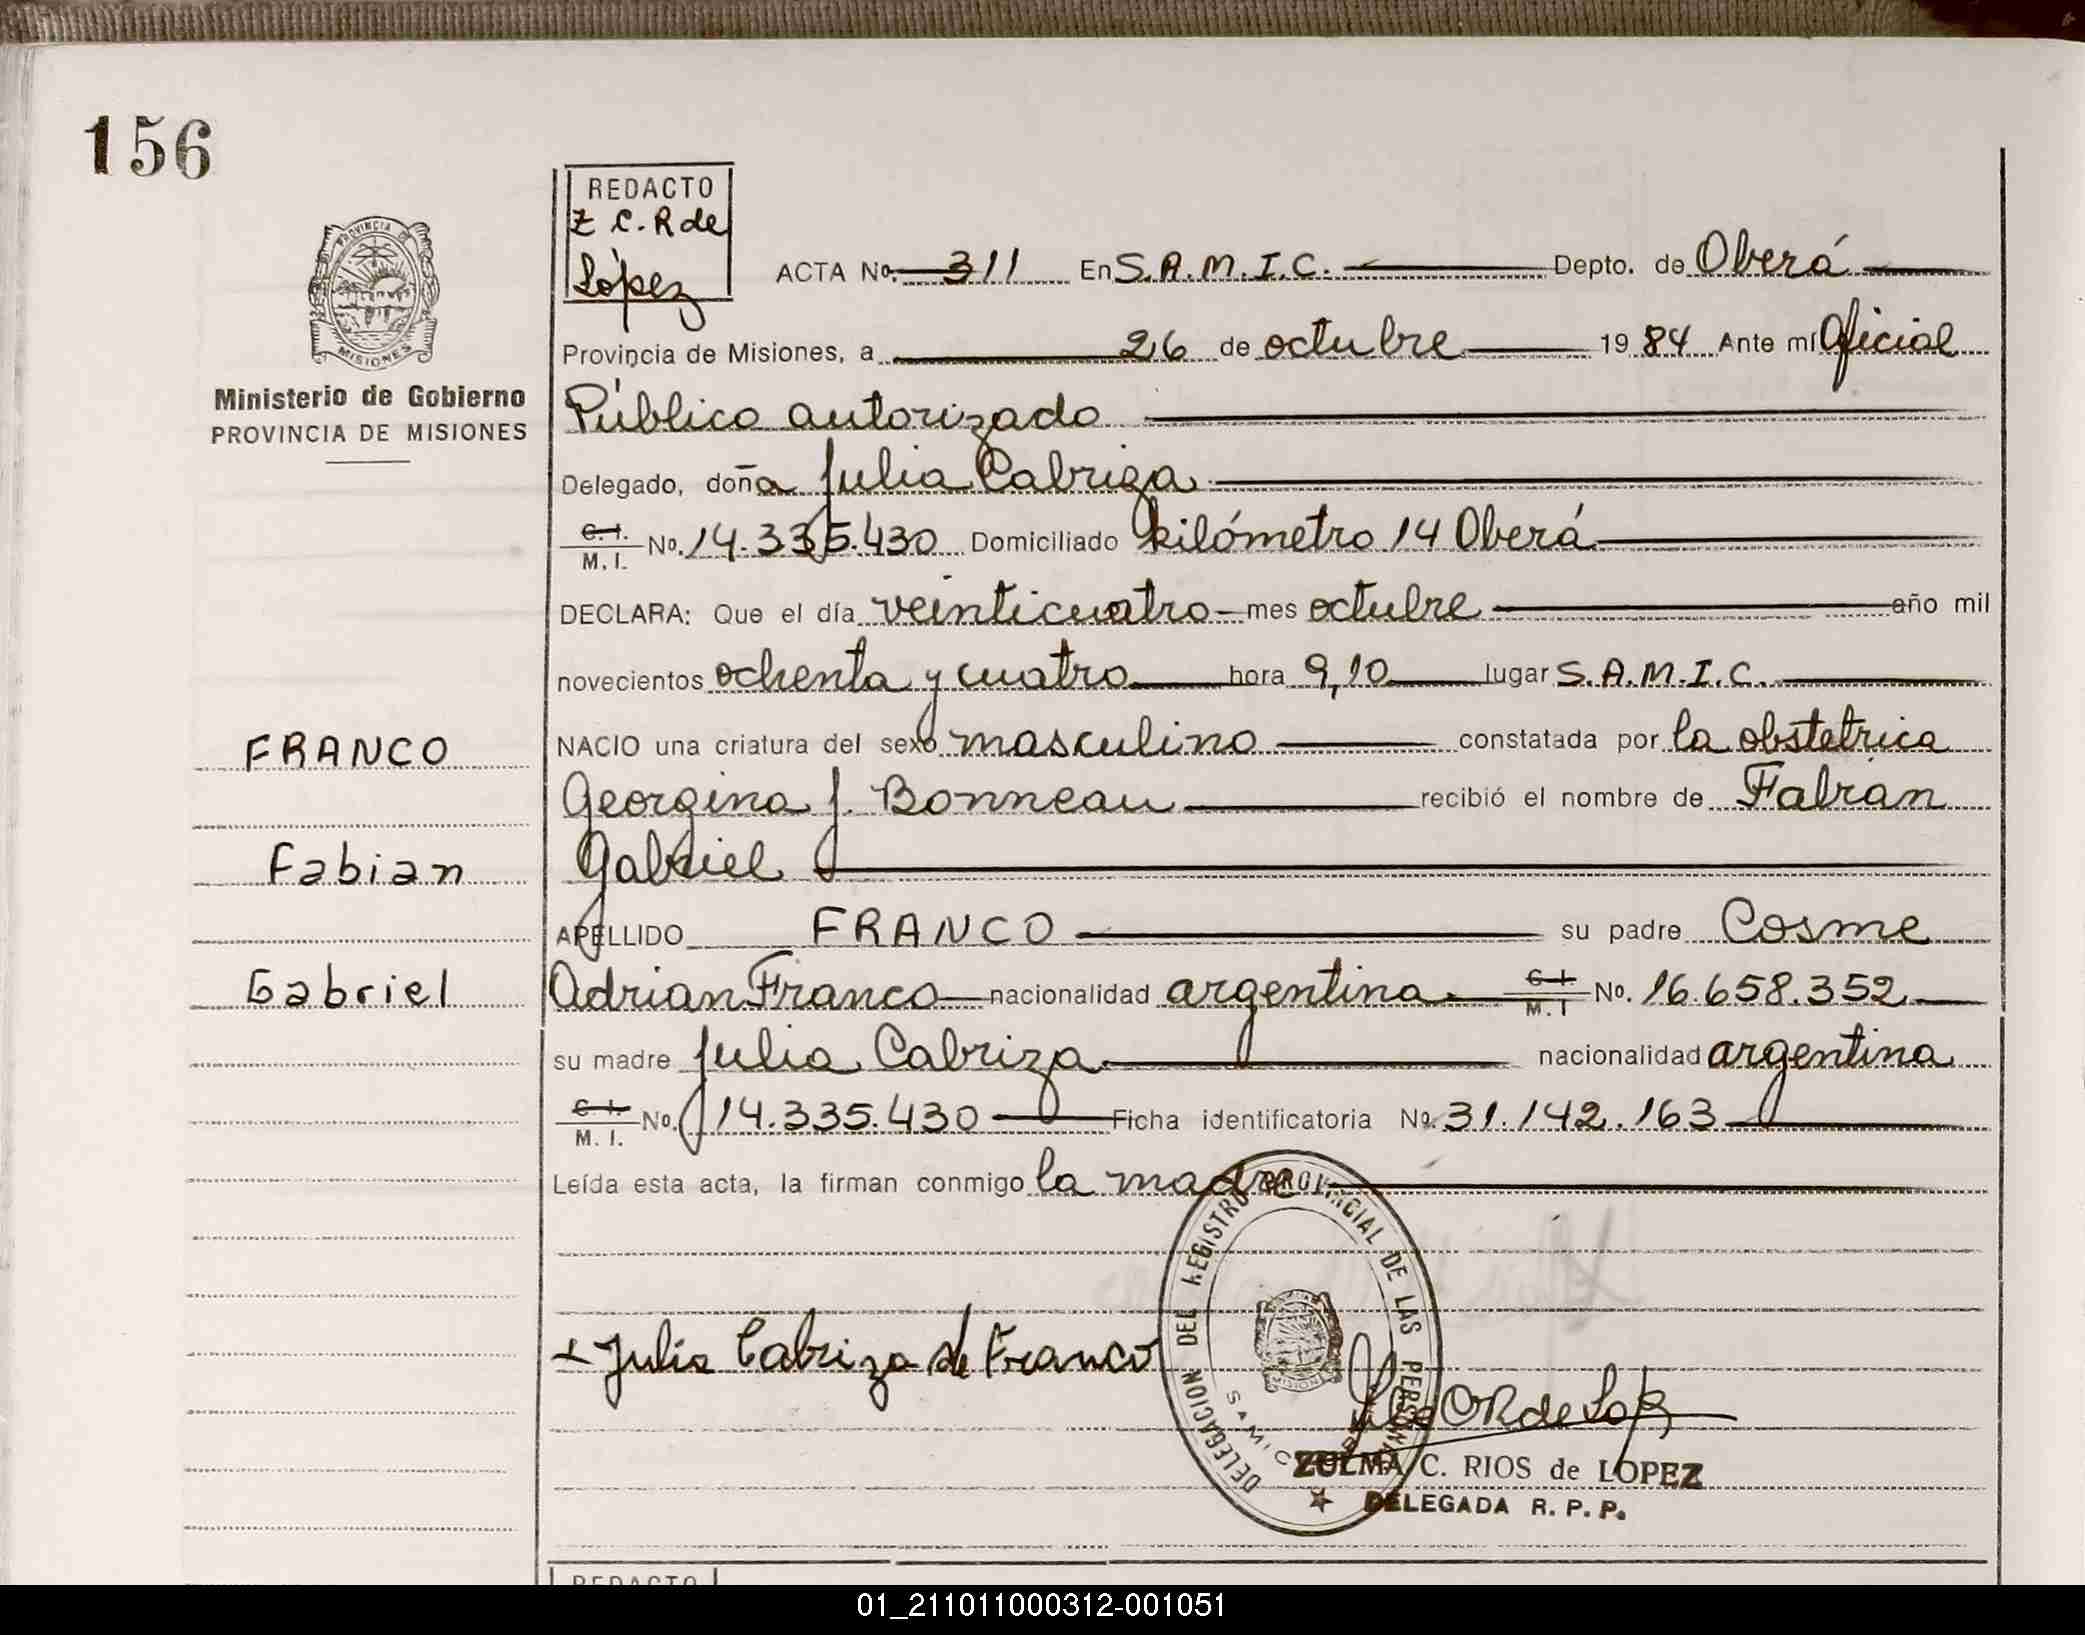 156
REDACTO
Z C. R de
López
ACTA No. 311 En S.A.M.I.C. Depto. de Oberá
Provincia de Misiones, a 26 de octubre 1984 Ante mí Oficial
Público autorizado
Delegado, doña Julia Cabriza
C. I. M. I. No. 14.335.430 Domiciliado kilómetro 14 Oberá
DECLARA: Que el día veinticuatro mes octubre año mil
novecientos ochenta y cuatro hora 9,10 lugar S.A.M.I.C.
NACIO una criatura del sexo masculino constatada por la obstetrica
Georgina J. Bonneau recibió el nombre de Fabian
Gabriel
APELLIDO FRANCO su padre Cosme
Adrian Franco nacionalidad argentina C. I. M. I No. 16.658.352
su madre Julia Cabriza nacionalidad argentina
C. I. M. I. No. 14.335.430 Ficha identificatoria No. 31.142.163
Leída esta acta, la firman conmigo la madre
Julia Cabriza de Franco
PROVINCIA DE
MISIONES
Ministerio de Gobierno
PROVINCIA DE MISIONES
FRANCO
Fabian
Gabriel
DELEGACION DEL REGISTRO PROVINCIAL DE LAS PERSONAS
MISIONES
SAMIC
ZULMA C. RIOS de LOPEZ
DELEGADA R. P. P.
REDACTO
01_211011000312-001051